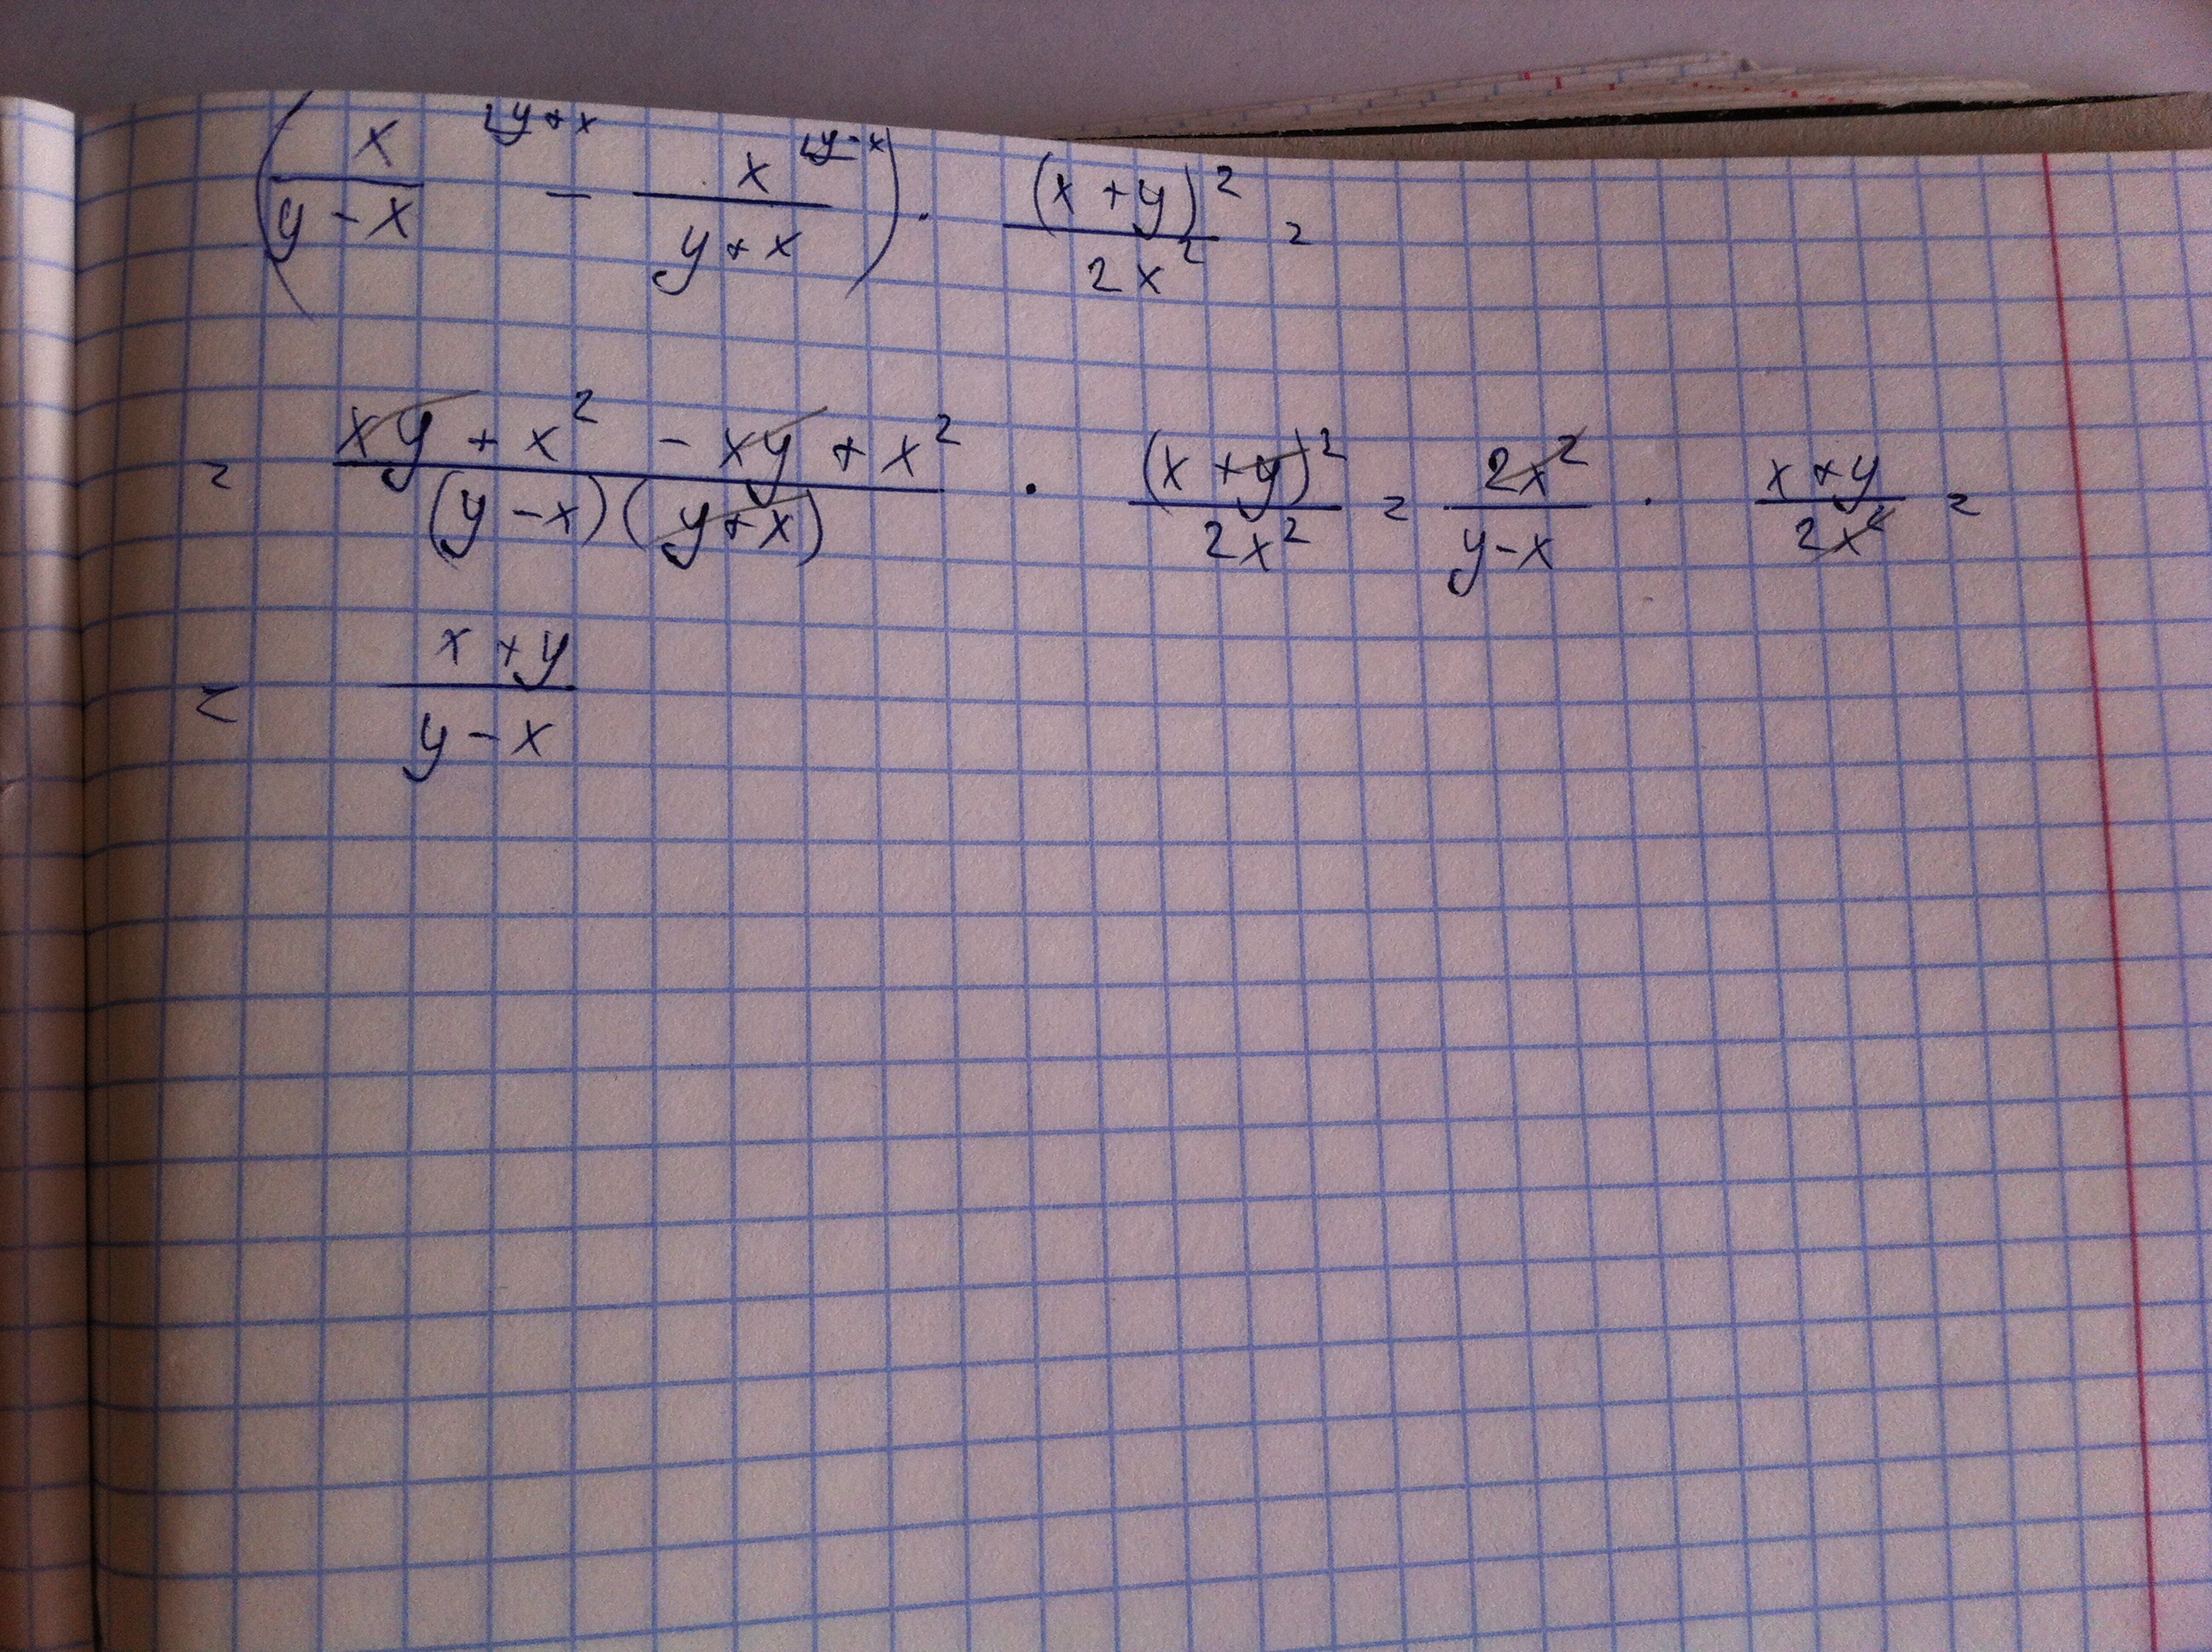 (x/(y-x) ⌊y+x - x/(y+x) ⌊y-x) · (x+y)²/2x² =
= (xy + x² - xy + x²)/((y-x)(y+x)) · (x+y)²/2x² = 2x²/(y-x) · (x+y)/2x² =
= (x+y)/(y-x)